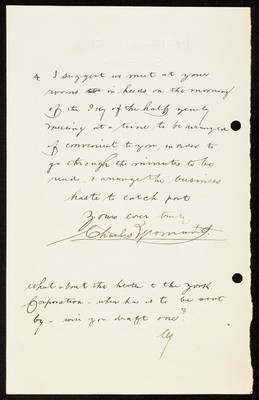 4. I suggest we meet at your
rooms in Leeds on the morning
of the day of the half yearly
meeting at a time to be arranged
if convenient to you, in order to
go through the minutes to be
read, & arrange the business
haste to catch post
Yours ever truly
Charles
What about the letter to the York
Corporation – when has it to be sent
by – will you draft one?